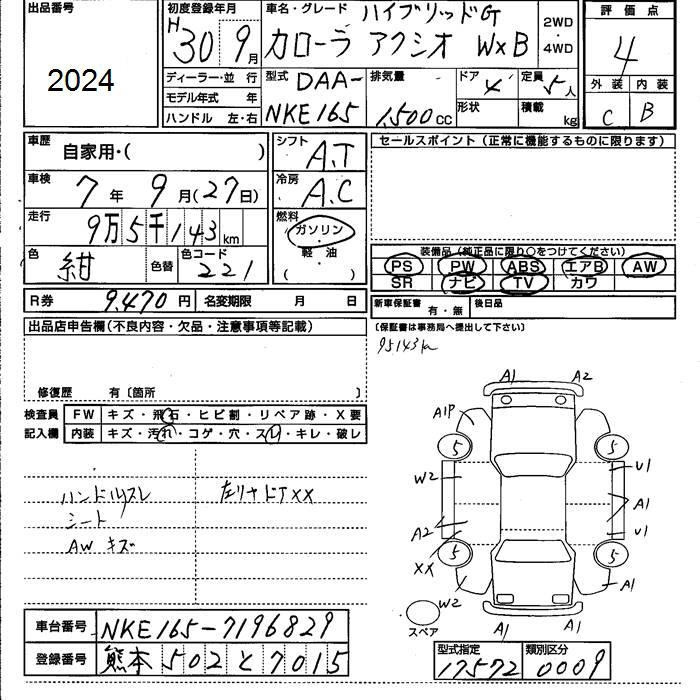 出品番号
2024
初度登録年月
H30 9月
車名・グレード ハイブリッドG
カローラ アクシオ W×B
2WD
・
4WD
評価点
4
外装 内装
C B
ディーラー・並行
モデル年式 年
ハンドル 左・右
型式 DAA-
NKE165
排気量
1,500cc
ドア 4
形状
定員 5人
積載 kg
車歴
自家用・( )
車検
7年 9月(27日)
走行
9万5千143km
色 紺 色替
色コード 221
シフト
A.T
冷房
A.C
燃料
ガソリン
・
軽・油
( )
セールスポイント(正常に機能するものに限ります)
装備品(純正品に限り○をつけてください)
PS PW ABS エアB AW
SR ナビ TV カワ
R券 9,470円 名変期限 月 日
新車保証書 有・無 後日品
〔保証書は事務局へ提出して下さい〕
95143k
出品店申告欄(不良内容・欠品・注意事項等記載)
修復歴 有〔箇所 〕
検査員
記入欄
FW キズ・飛石・ヒビ割・リペア跡・X要
内装 キズ・汚れ・コゲ・穴・スレ・キレ・破レ
ハンドルスレ 左リヤドアXX
シート
AW キズ
A1 A2
A1P
5 5
W2 U1
A1
A2 U1
XX 5 5
W2 A1
スペア
A1 A1
車台番号 NKE165-7196829
登録番号 熊本 502 と 7015
型式指定 類別区分
17572 0009